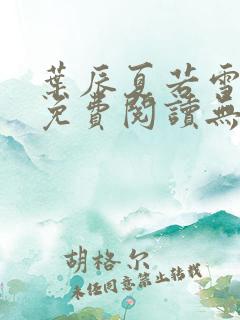 葉辰夏若雪
免費閱讀無
胡格尔
未经同意禁止转载